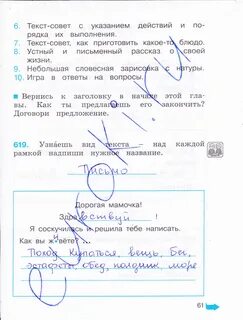 6. Текст-совет с указанием действий и по-
рядка их выполнения.
7. Текст-совет, как приготовить какое-то блюдо.
8. Устный и письменный рассказ о своей
жизни.
9. Небольшая словесная зарисовка с натуры.
10. Игра в ответы на вопросы.
Вернись к заголовку в начале этой гла-
вы. Как ты предлагаешь его закончить?
Договори предложение.
619. Узнаёшь вид текста – над каждой
рамкой надпиши нужное название.
Письмо
Дорогая мамочка!
Здравствуй!
Я соскучилась и решила тебе написать.
Как вы живёте?
Поход, Купаться, вещь, Бег,
эстафеты, обед, полдник, море
61